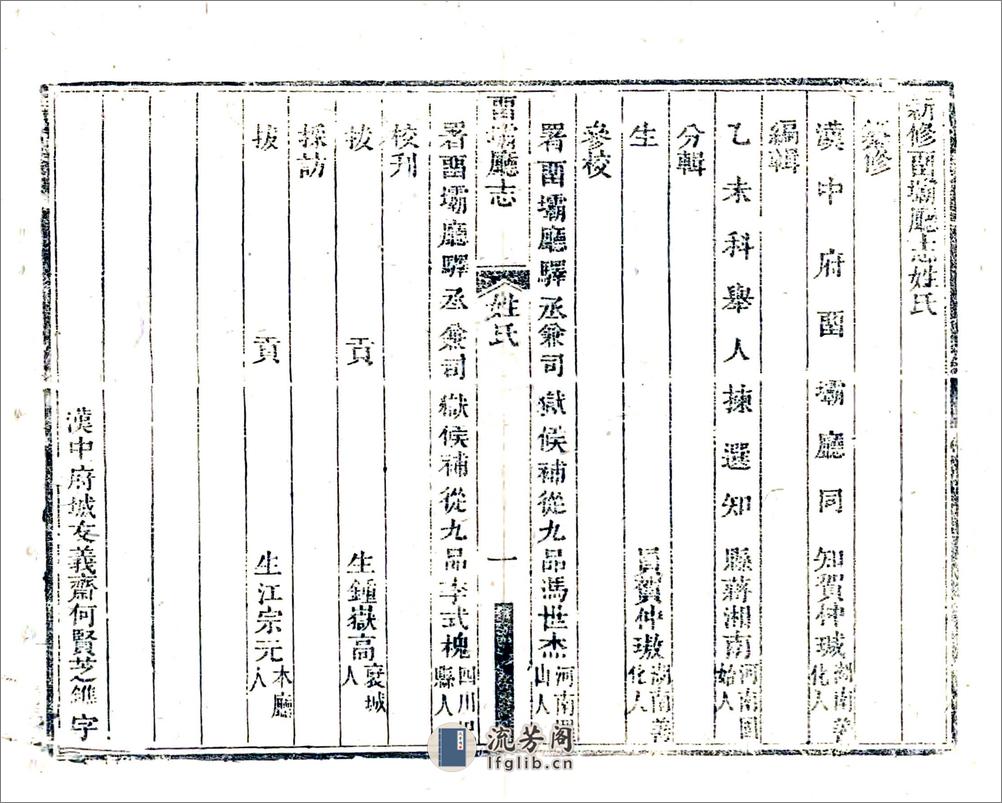 新修畱壩廳志姓氏
纂修
漢中府畱壩廳同知賀仲瑊湖南善化人
編輯
乙未科舉人揀選知縣蔣湘南河南固始人
分輯
生員賀仲璈湖南善化人
參校
署畱壩廳驛丞兼司獄候補從九品馮世杰河南 山人
畱壩廳志 姓氏 一
署畱壩廳驛丞兼司獄候補從九品李式槐四川 縣人
校刊
拔貢生鍾嶽高褒城人
採訪
拔貢生江宗元本廳人
漢中府城友義齋何賢芝鐫字
流芳阁
lfglib.cn